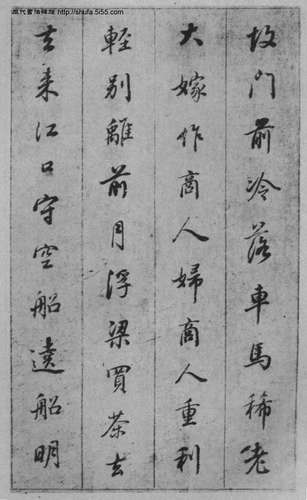 http://shufa.5i55.com
故门前冷落車馬稀老
大嫁作商人婦商人重利
輕别離前月浮梁買茶去
去来江口守空船遶船明